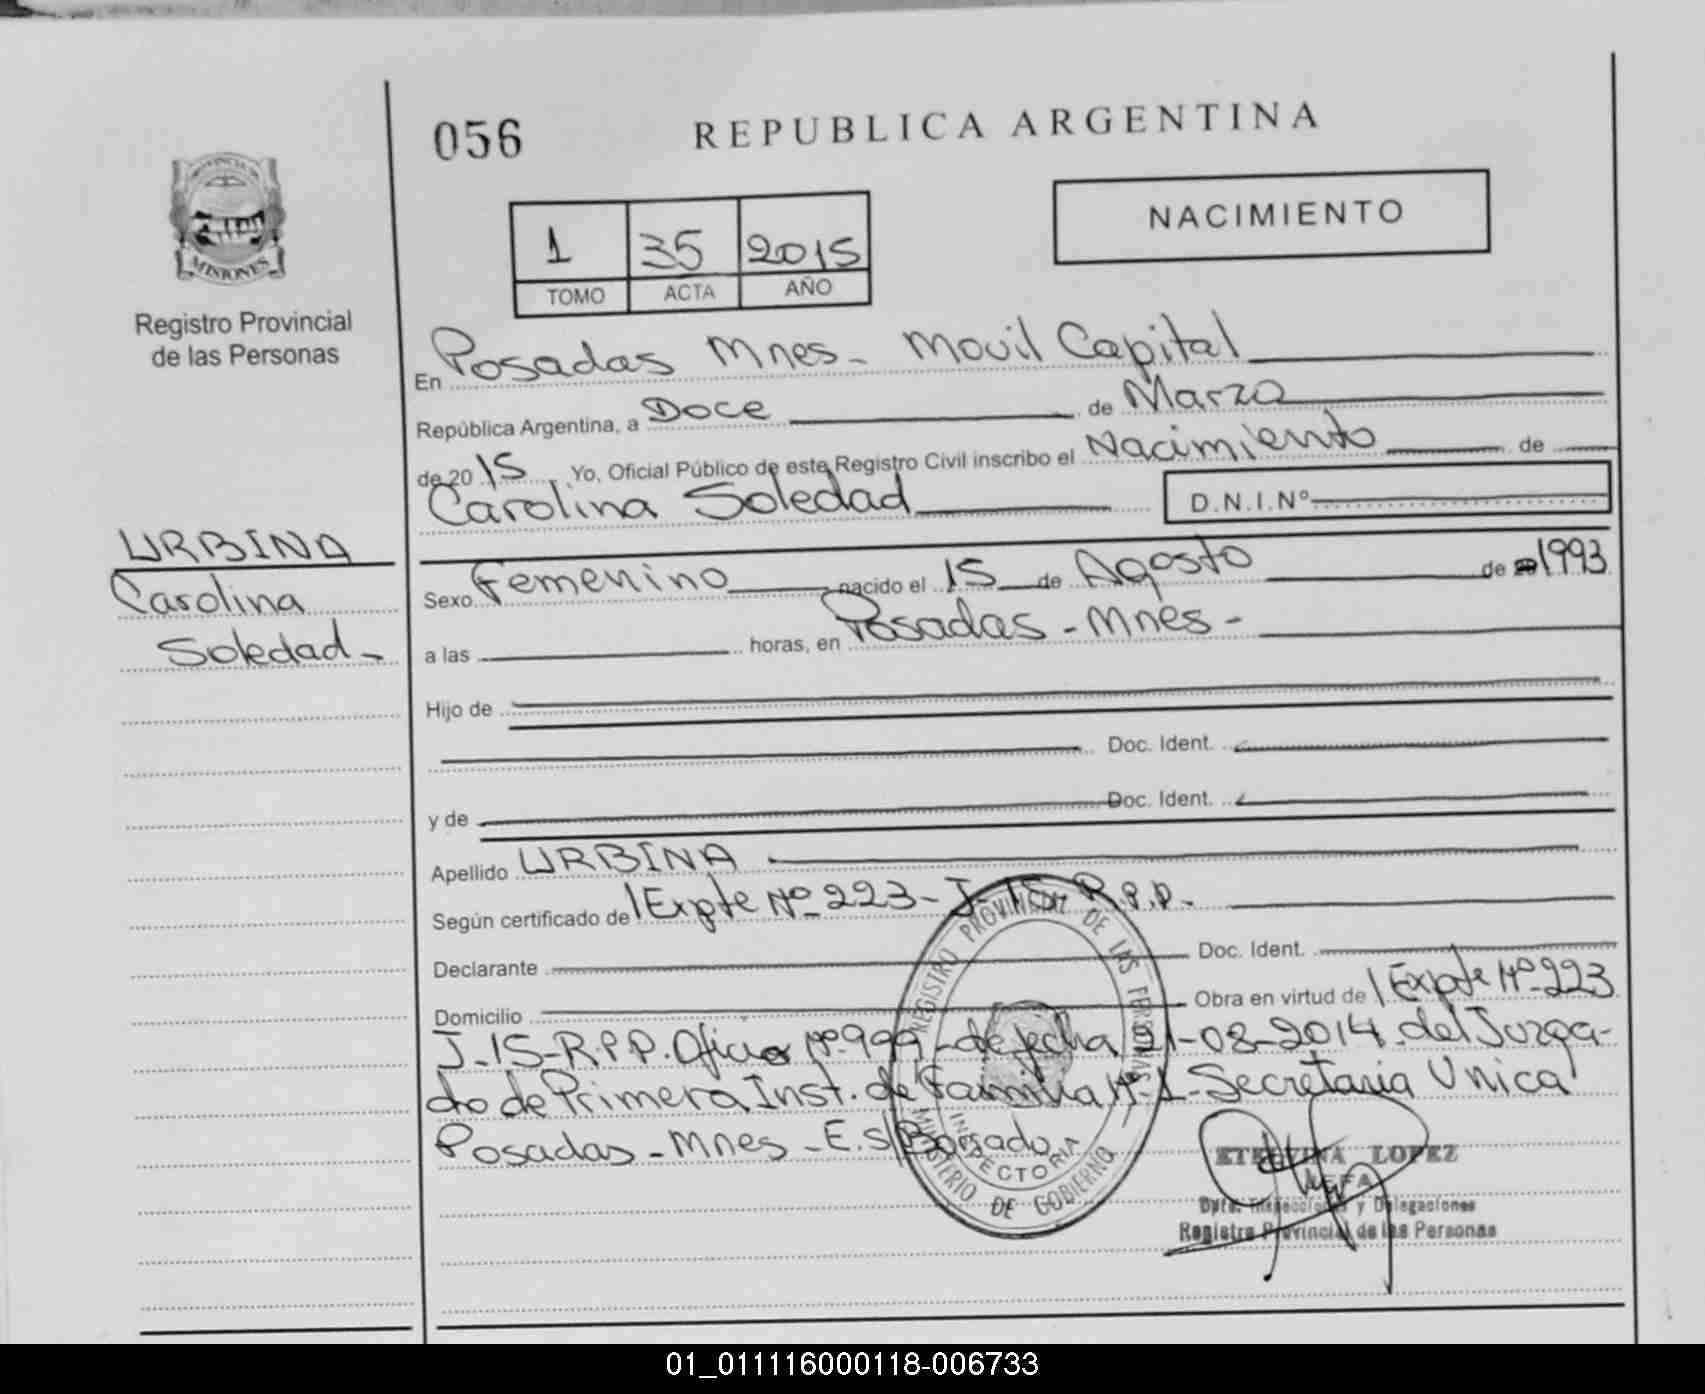 056
REPUBLICA ARGENTINA
1 35 2015
TOMO ACTA AÑO
NACIMIENTO
MISIONES
Registro Provincial
de las Personas
En Posadas Mnes- Movil Capital
República Argentina, a Doce de Marzo
de 2015. Yo, Oficial Público de este Registro Civil inscribo el Nacimiento de
Carolina Soledad D.N.I.Nº
URBINA
Carolina
Soledad-
Sexo Femenino nacido el 15 de Agosto de 1993
a las horas, en Posadas-Mnes-
Hijo de
Doc. Ident.
y de Doc. Ident.
Apellido URBINA
Según certificado de Expte Nº 223-J-15-R.P.P.-
Declarante Doc. Ident.
Domicilio Obra en virtud de Expte Nº 223
J-15-R.P.P. Oficio Nº 999-de fecha 21-08-2014 del Juzga-
do de Primera Inst. de Familia Nº 1-Secretaria Unica
Posadas-Mnes-E.S/Borsado
REGISTRO PROVINCIAL DE LAS PERSONAS
MINISTERIO DE GOBIERNO
INSPECTORIA
ETELVINA LOPEZ
JEFA
Dpto. Inspecciones y Delegaciones
Registro Provincial de las Personas
01_011116000118-006733